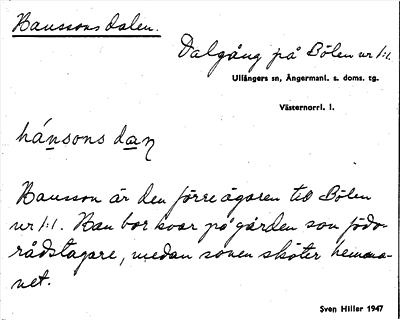 Hanssons dalen.
Dalgång på Bölen nr 1:1.
Ullångers sn, Ångermanl. s. doms. tg.
Västernorrl. l.
hánsons dan̨
Hansson är den förre ägaren till Bölen
nr 1:1. Han bor kvar på gården som födo-
rådstagare, medan sonen sköter hemma-
net.
Sven Hiller 1947